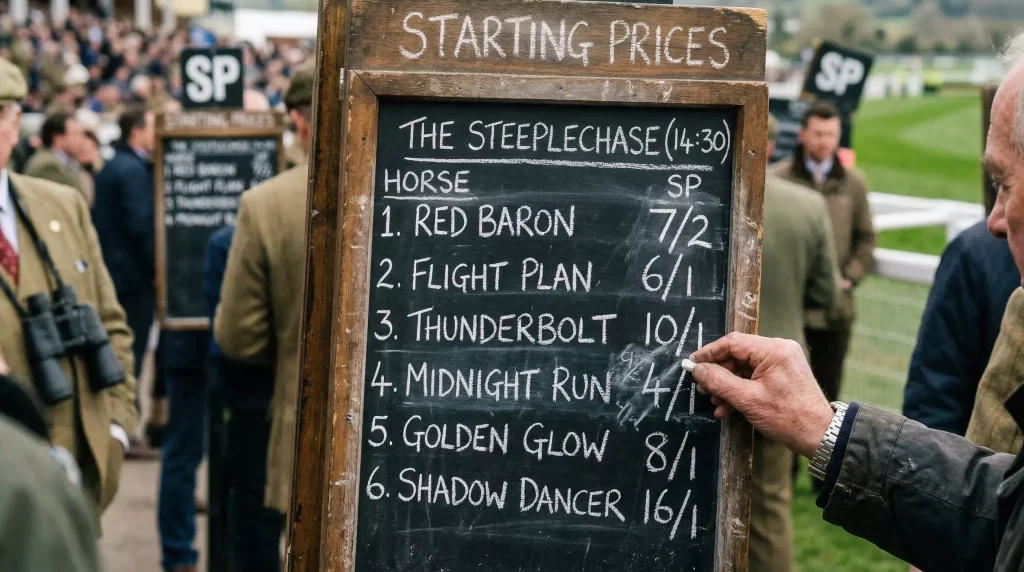 STARTING PRICES
THE STEEPLECHASE (14:30)
HORSE SP
1. RED BARON 7/2
2. FLIGHT PLAN 6/1
3. THUNDERBOLT 10/1
4. MIDNIGHT RUN 4/1
5. GOLDEN GLOW 8/1
6. SHADOW DANCER 16/1
SP
STARTING PRICES
RED BARON
FLIGHT PLAN
THUNDERB
MIDNIGHT R
SP